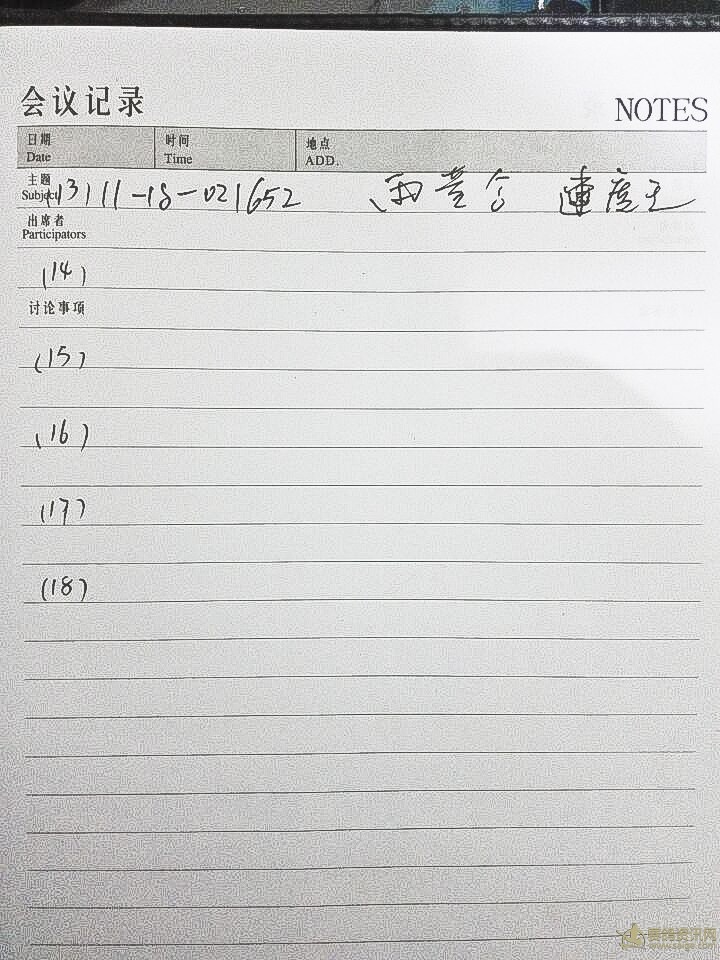 会议记录 NOTES
日期 时间 地点
Date Time ADD.
主题
Subject (13) 11-18-021652
出席者
Participators
(14)
讨论事项
(15)
(16)
(17)
(18)